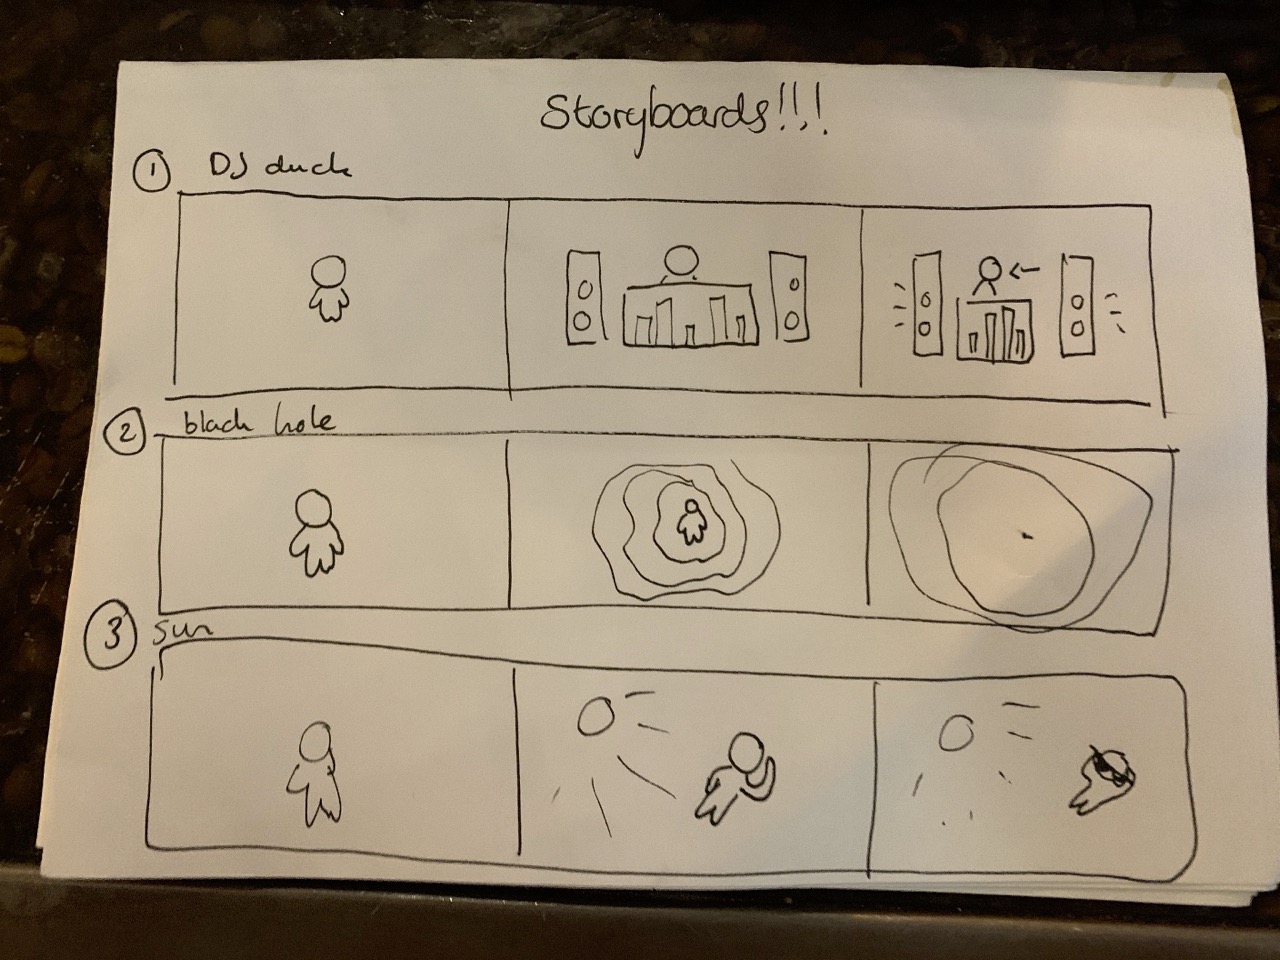 Storyboards!!!!
1 DJ duck
2 black hole
3 sun